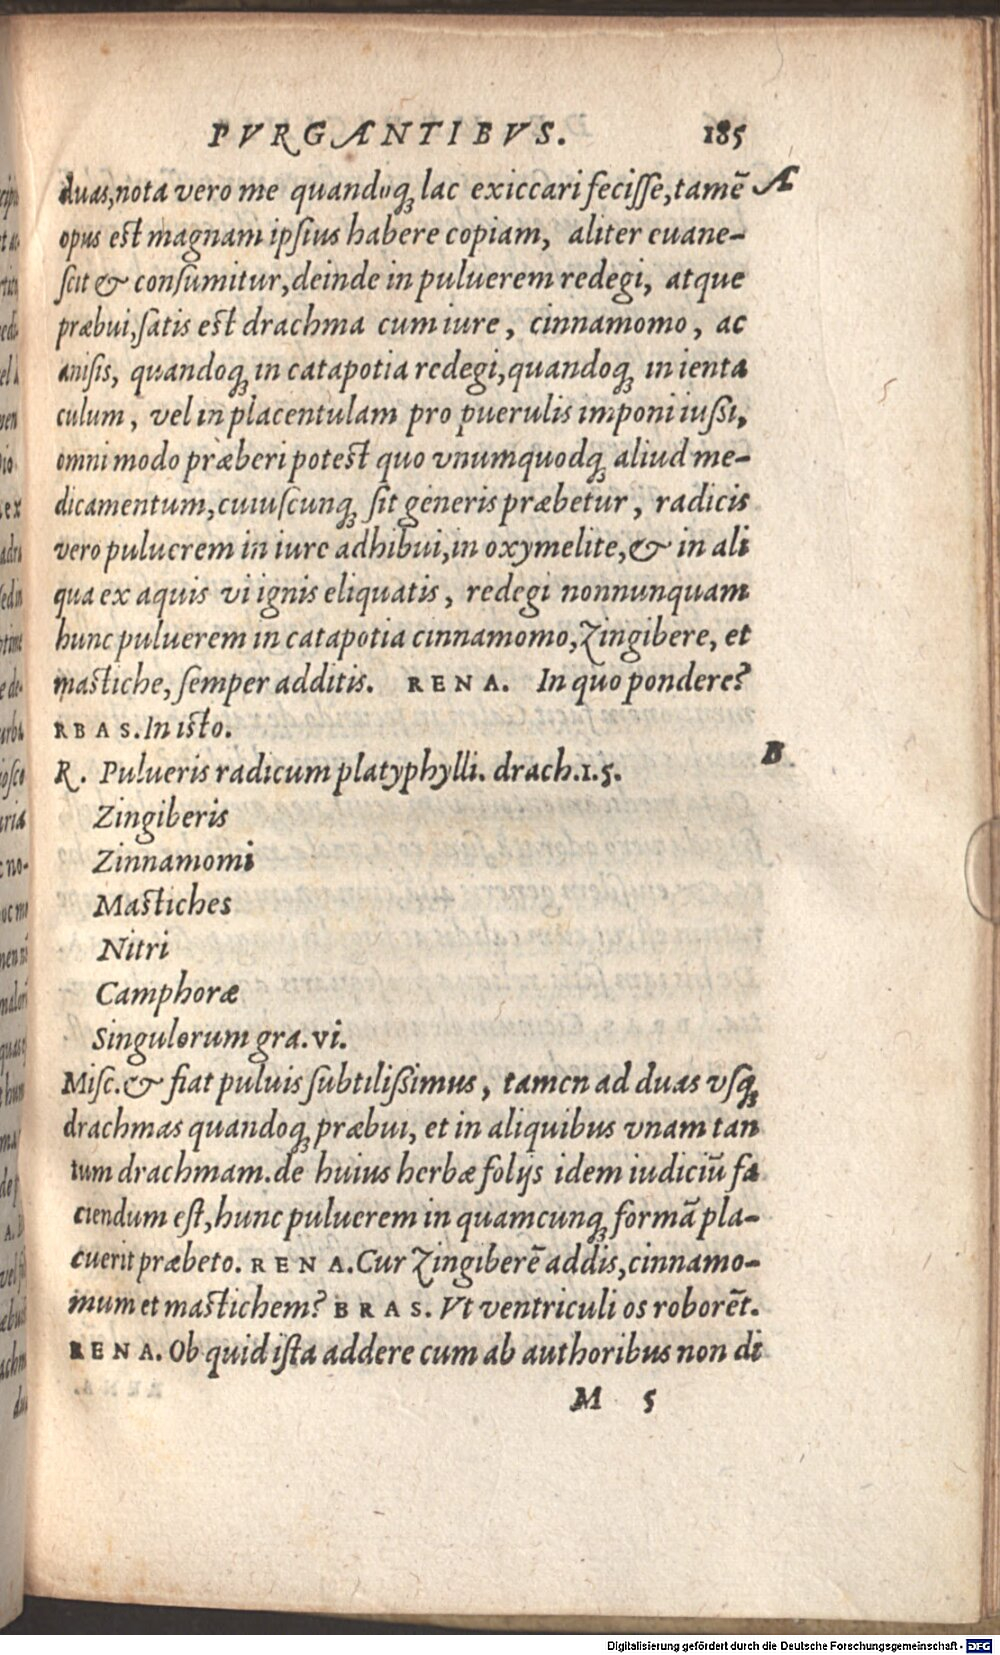 PVRGANTIBVS. 185
duas, nota vero me quandoq; lac exiccari fecisse, tamē A
opus est magnam ipsius habere copiam, aliter euane-
scit & consumitur, deinde in puluerem redegi, atque
præbui, satis est drachma cum iure, cinnamomo, ac
anisis, quandoq; in catapotia redegi, quandoq; in ienta
culum, vel in placentulam pro puerulis imponi iussi,
omni modo præberi potest quo vnumquodq; aliud me-
dicamentum, cuiuscunq; sit generis præbetur, radicis
vero puluerem in iure adhibui, in oxymelite, & in ali
qua ex aquis vi ignis eliquatis, redegi nonnunquam
hunc puluerem in catapotia cinnamomo, Zingibere, et
mastiche, semper additis. RENA. In quo pondere?
RBAS. In isto.
R. Pulueris radicum platyphylli. drach.1.5. B
Zingiberis
Zinnamomi
Mastiches
Nitri
Camphoræ
Singulorum gra. vi.
Misc. & fiat puluis subtilissimus, tamen ad duas vsq;
drachmas quandoq; præbui, et in aliquibus vnam tan
tum drachmam. de huius herbæ folijs idem iudiciū fa
ciendum est, hunc puluerem in quamcunq; formā pla-
cuerit præbeto. RENA. Cur Zingiberē addis, cinnamo-
mum et mastichem? BRAS. Vt ventriculi os roborēt.
RENA. Ob quid ista addere cum ab authoribus non di
M 5
Digitalisierung gefördert durch die Deutsche Forschungsgemeinschaft - DFG